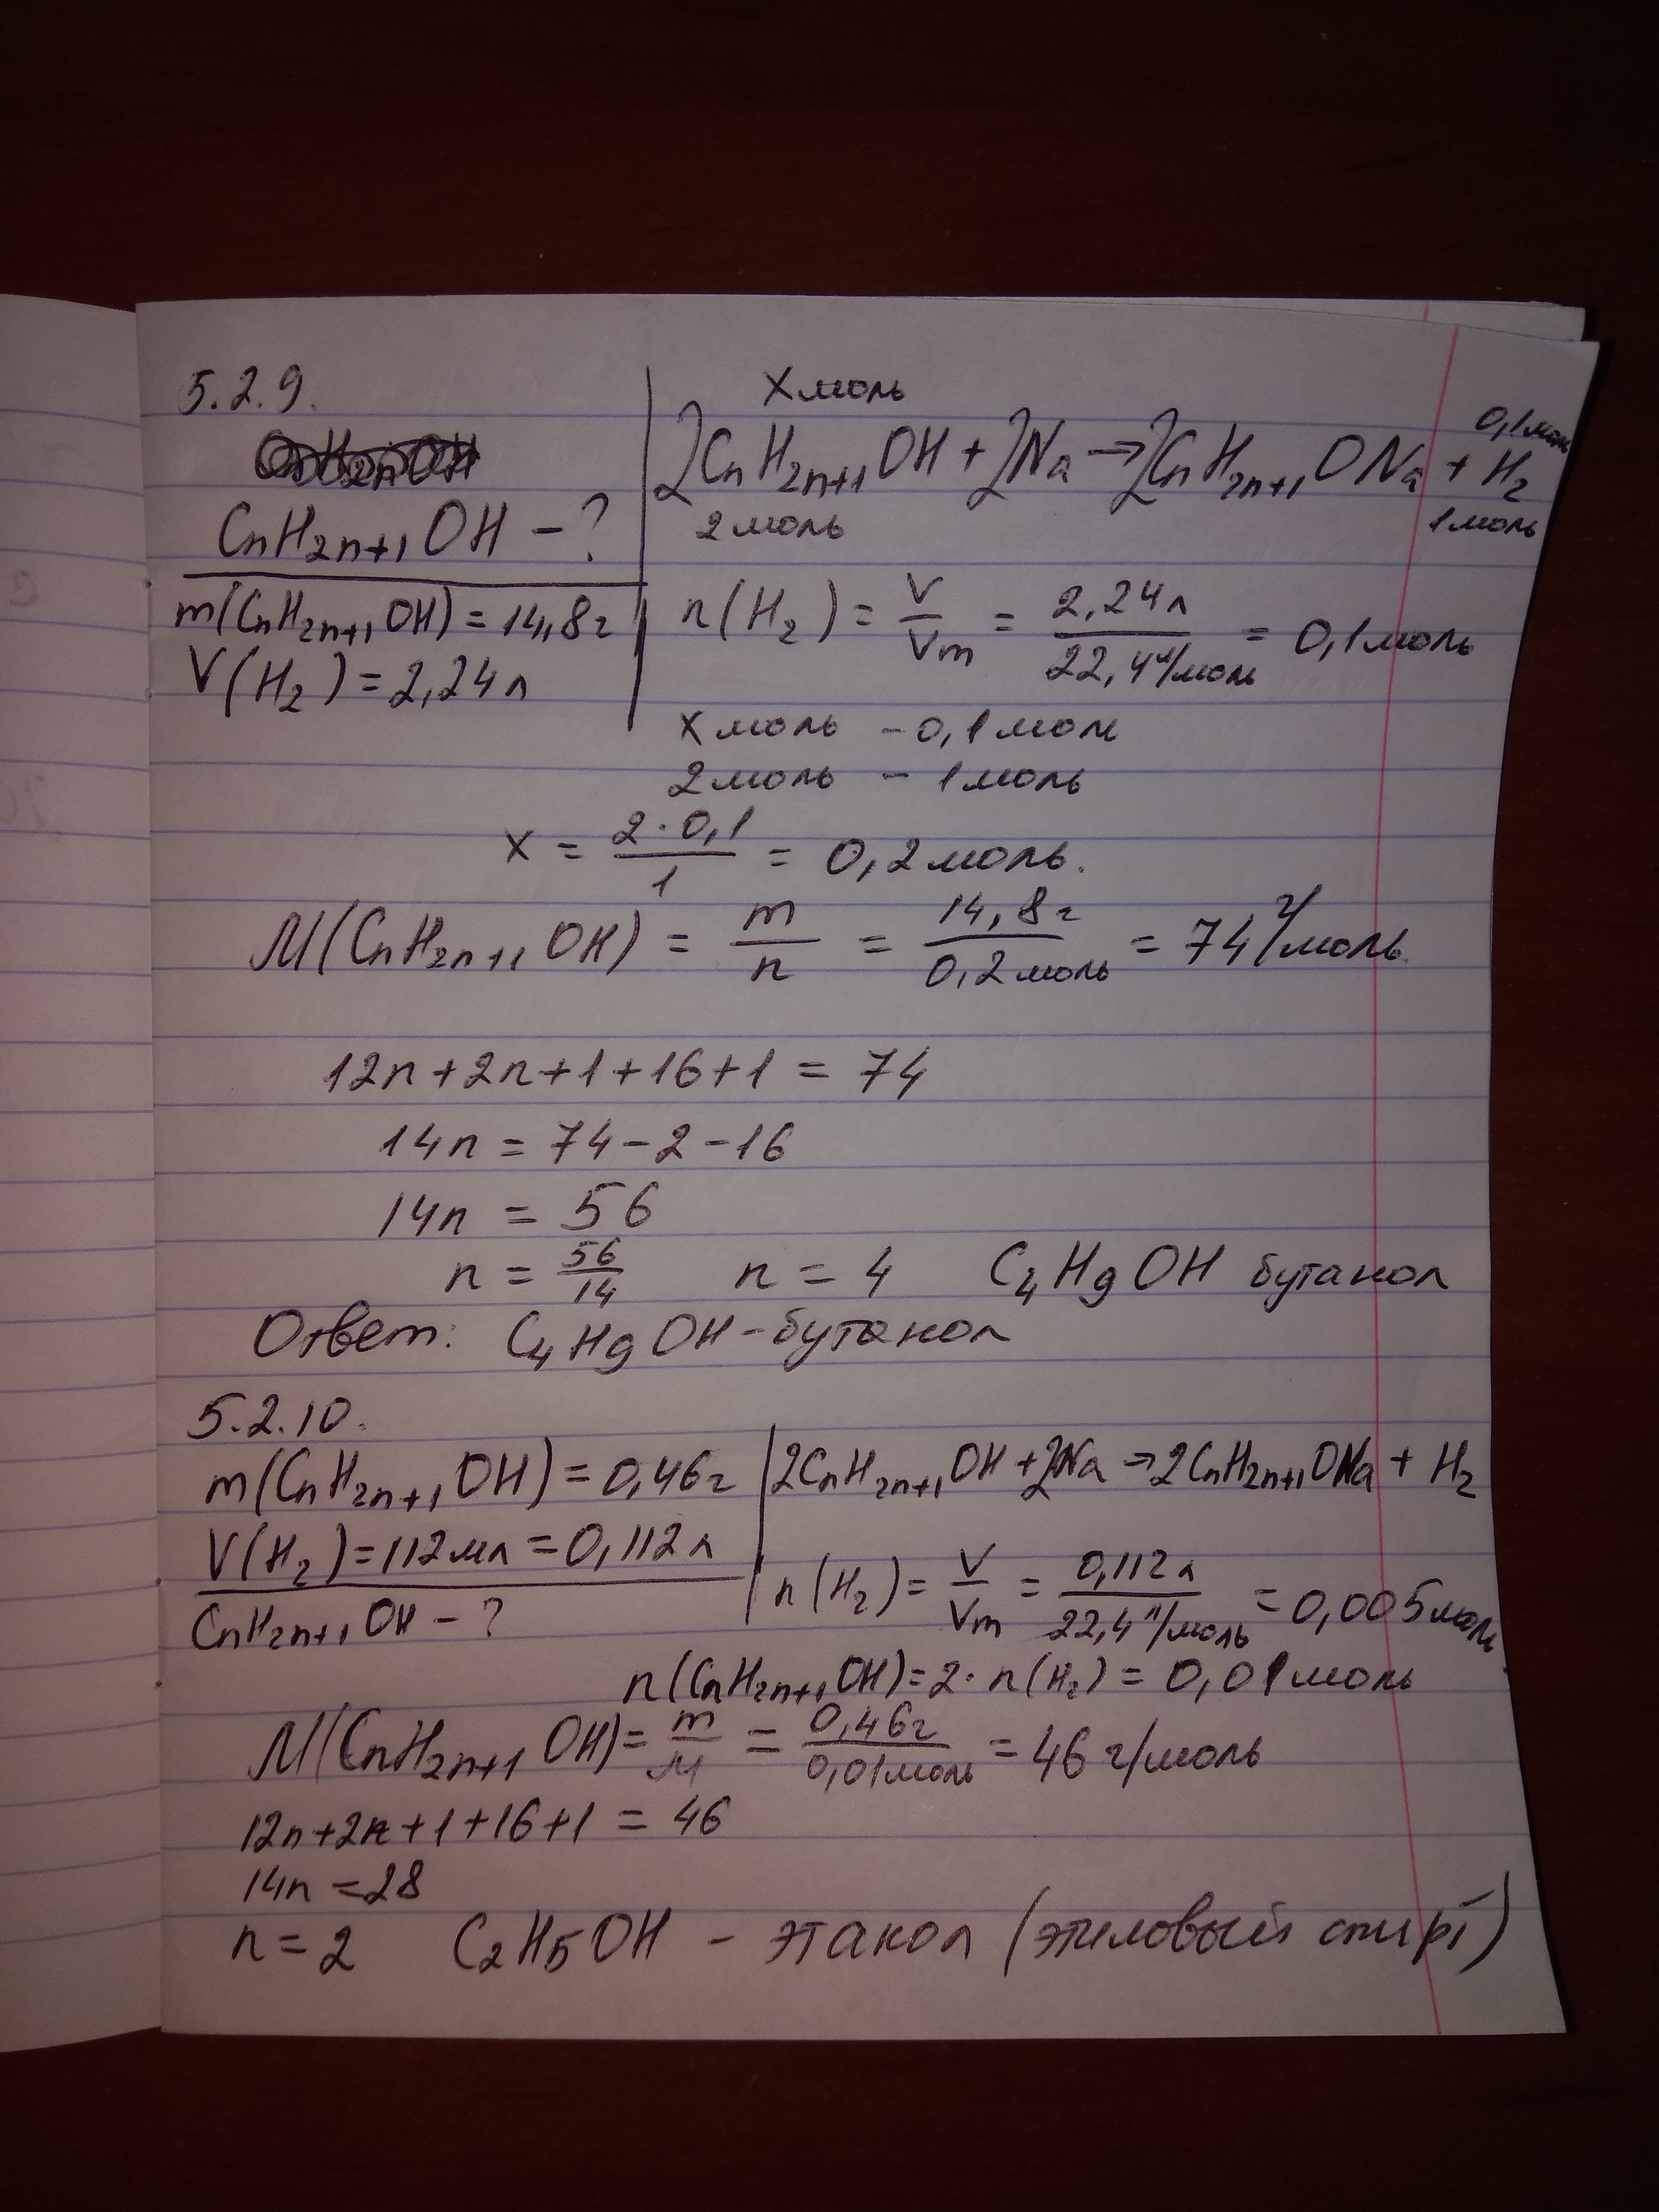 5.2.9.
CnH2n+1OH - ?
m(CnH2n+1OH) = 14,8г
V(H2) = 2,24л
x моль
0,1моль
2CnH2n+1OH + 2Na → 2CnH2n+1ONa + H2
2 моль
1моль
n(H2) = V/Vm = 2,24л/22,4л/моль = 0,1моль
x моль - 0,1 моль
2 моль - 1 моль
x = 2·0,1/1 = 0,2моль.
M(CnH2n+1OH) = m/n = 14,8г/0,2моль = 74г/моль
12n+2n+1+16+1 = 74
14n = 74-2-16
14n = 56
n = 56/14 n = 4 C4H9OH бутанол
Ответ: C4H9OH-бутанол
5.2.10.
m(CnH2n+1OH) = 0,46г
V(H2)=112мл=0,112л
CnH2n+1OH - ?
2CnH2n+1OH + 2Na → 2CnH2n+1ONa + H2
n(H2) = V/Vm = 0,112л/22,4л/моль = 0,005моль
n(CnH2n+1OH) = 2·n(H2) = 0,01моль
M(CnH2n+1OH) = m/M = 0,46г/0,01моль = 46 г/моль
12n+2n+1+16+1 = 46
14n = 28
n = 2 C2H5OH - этанол (этиловый спирт)